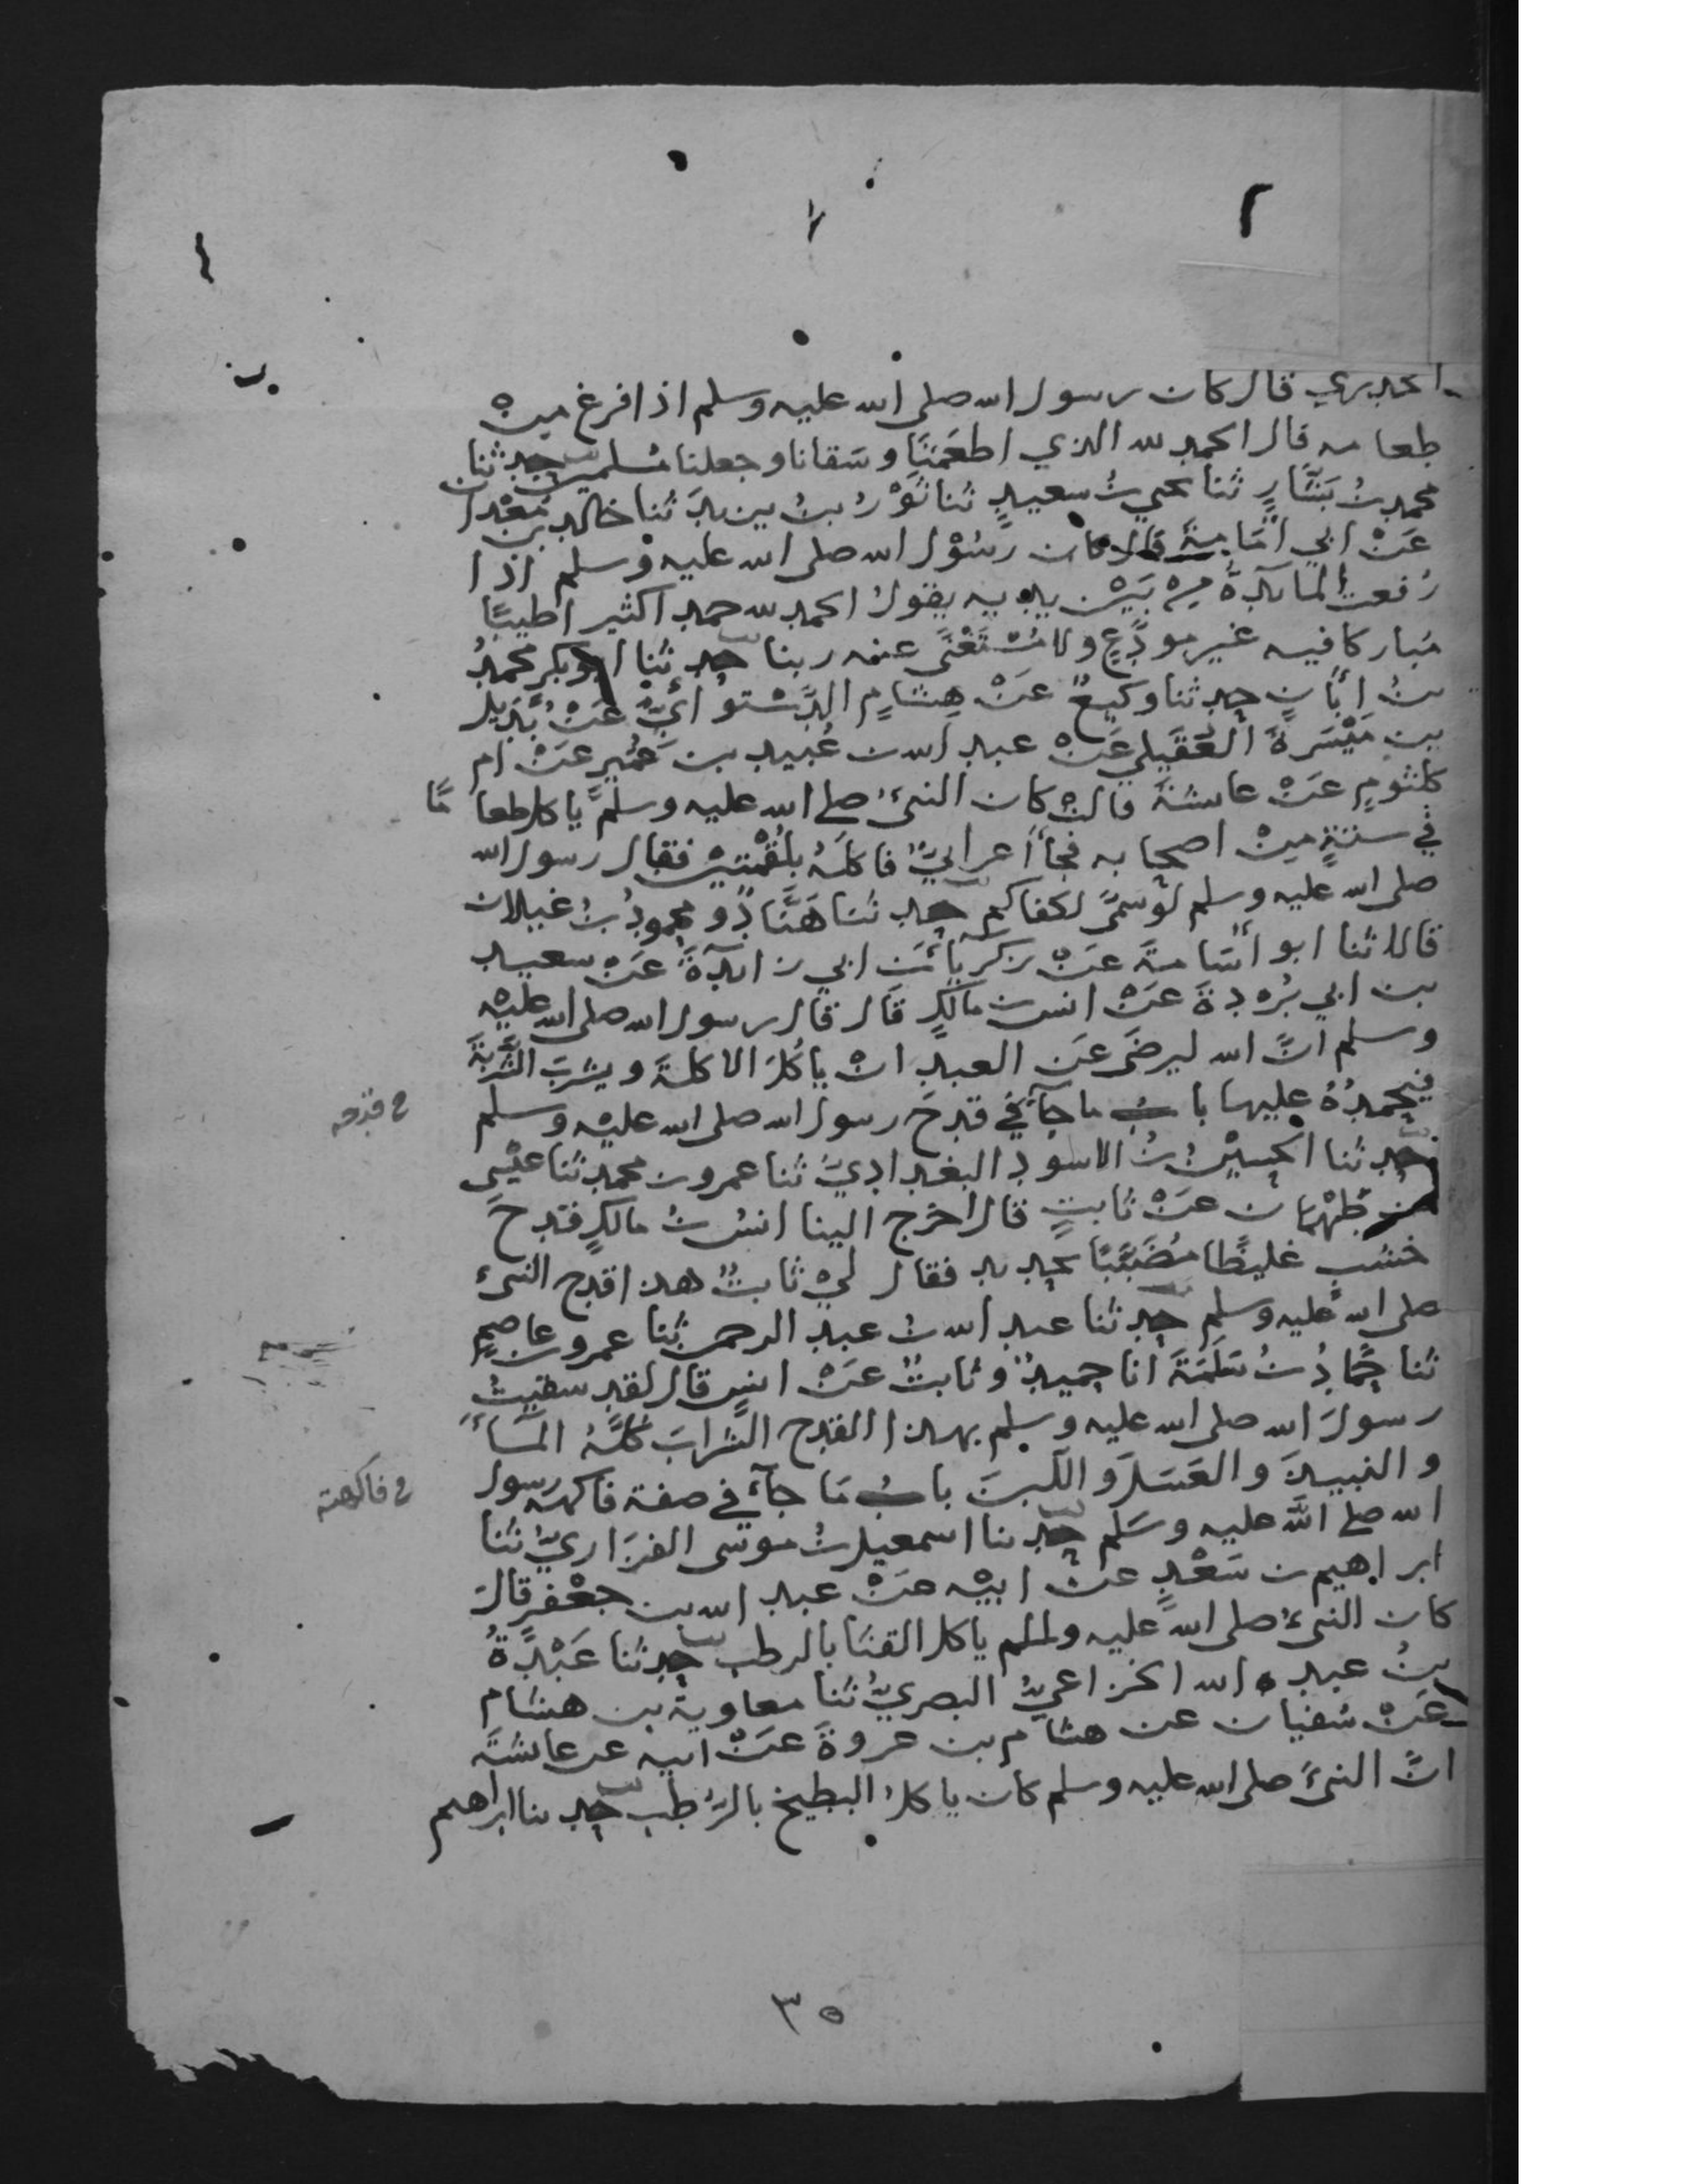 الخدري قال كان رسول الله صلى الله عليه وسلم اذا فرغ مِنْ
طعامه قال الحمد لله الذي اطعَمَنَا وسَقانا وجعلنا مُسلمين حدثنا
محمد بنُ بَشَّارٍ ثنا يحيي بنُ سعيدٍ ثنا ثَوْرُ بنُ يزيدَ ثنا خالد بن مَعْدان
عَنْ ابي امَامةَ قال كان رَسُوْل الله صلى الله عليه وسلم اذا
رُفعت المائدةُ مِنْ بَيْن يديه يقولُ الحمد لله حمدا كثيرا طيبًا
مُباركا فيه غير مودَّعٍ ولا مُسْتَغْنًى عنه ربنا حدثنا ابو بكر محمدُ
بنُ ابَانٍ حدثنا وكيعٌ عَنْ هِشَامٍ الدَّسْتوائيِّ عَنْ بُدَيل
بن مَيْسَرةَ العُقَيلي عَنْ عبد الله بن عُبيد بن عُمَيرٍ عَنْ ام
كلثومٍ عَنْ عائشةَ قالتْ كان النبيُّ صلى الله عليه وسلم ياكل طعامًا
في ستةٍ مِنْ اصحابه فجاأ عرابيٌّ فاكلَهُ بلُقْمتينْ فقال رسول الله
صلى الله عليه وسلم لوْ سمَّى لكفاكم حدثنا هَنَّادٌ ومحمودُ بنُ غيلان
قالا ثنا ابو اُسَامةَ عَنْ زكريَّا بْن ابي زائدَةَ عَنْ سعيد
بن ابي بُرْدةَ عَنْ انس بن مالكٍ قَال قال رسول الله صلى الله عليْه
وسلم انَّ الله ليرضَى عَن العبدِ انْ ياكُلَ الاكلةَ ويشربَ الشَّربةَ
فيحمدُهُ عليها بابُ ما جآء في قدحَ رسول الله صلى الله عليْه وسلم
في قدحه
حدثنا الحسيْنُ بنُ الاسودِ البغداديّ ثنا عمرو بن محمدٍ ثنا عيْسى
بن طَهْمان عَنْ ثابتٍ قال اخرج الينا انسُ بنُ مالكٍ قدحَ
خشبٍ غليظًا مُضَبَّبًا بحديد فقال ليْ ثابتُ هذا قدح النبيّ
صلى الله عليه وسلم حدثنا عبد الله بنُ عبد الرحمن ثنا عمرو بن عاصمٍ
ثنا حمَّادُ بنُ سَلَمَةَ انا حميدٌ وثابتٌ عَنْ انسٍ قال لقد سقيتُ
رسولَ الله صلى الله عليه وسلم بهذا القدح الشرابَ كُلَّهُ المآءَ
والنبيذَ والعَسَلَ واللَّبنَ بابُ مَا جآء في صفة فاكهة رسول
في فاكهته
الله صلى الله عليه وسَلم حدثنا اسمعيل بنُ موسى الفَزَاريُّ ثنا
ابراهيم بن سَعْدٍ عَنْ ابيْه عَنْ عبد الله بن جعْفرٍ قالَ
كان النبيُّ صلى الله عليه وسلم ياكل القثا بالرطب حدثنا عَبْدَةُ
بنُ عبد الله الخزاعيُّ البصريُّ ثنا معاويةُ بن هشام
عَنْ سُفيان عن هشام بن عروةَ عَنْ ابيه عن عائشةَ
انَّ النبيَّ صلى الله عليه وسلم كان ياكلُ البطيخ بالرُّطب حدثنا ابراهيم
٣٥